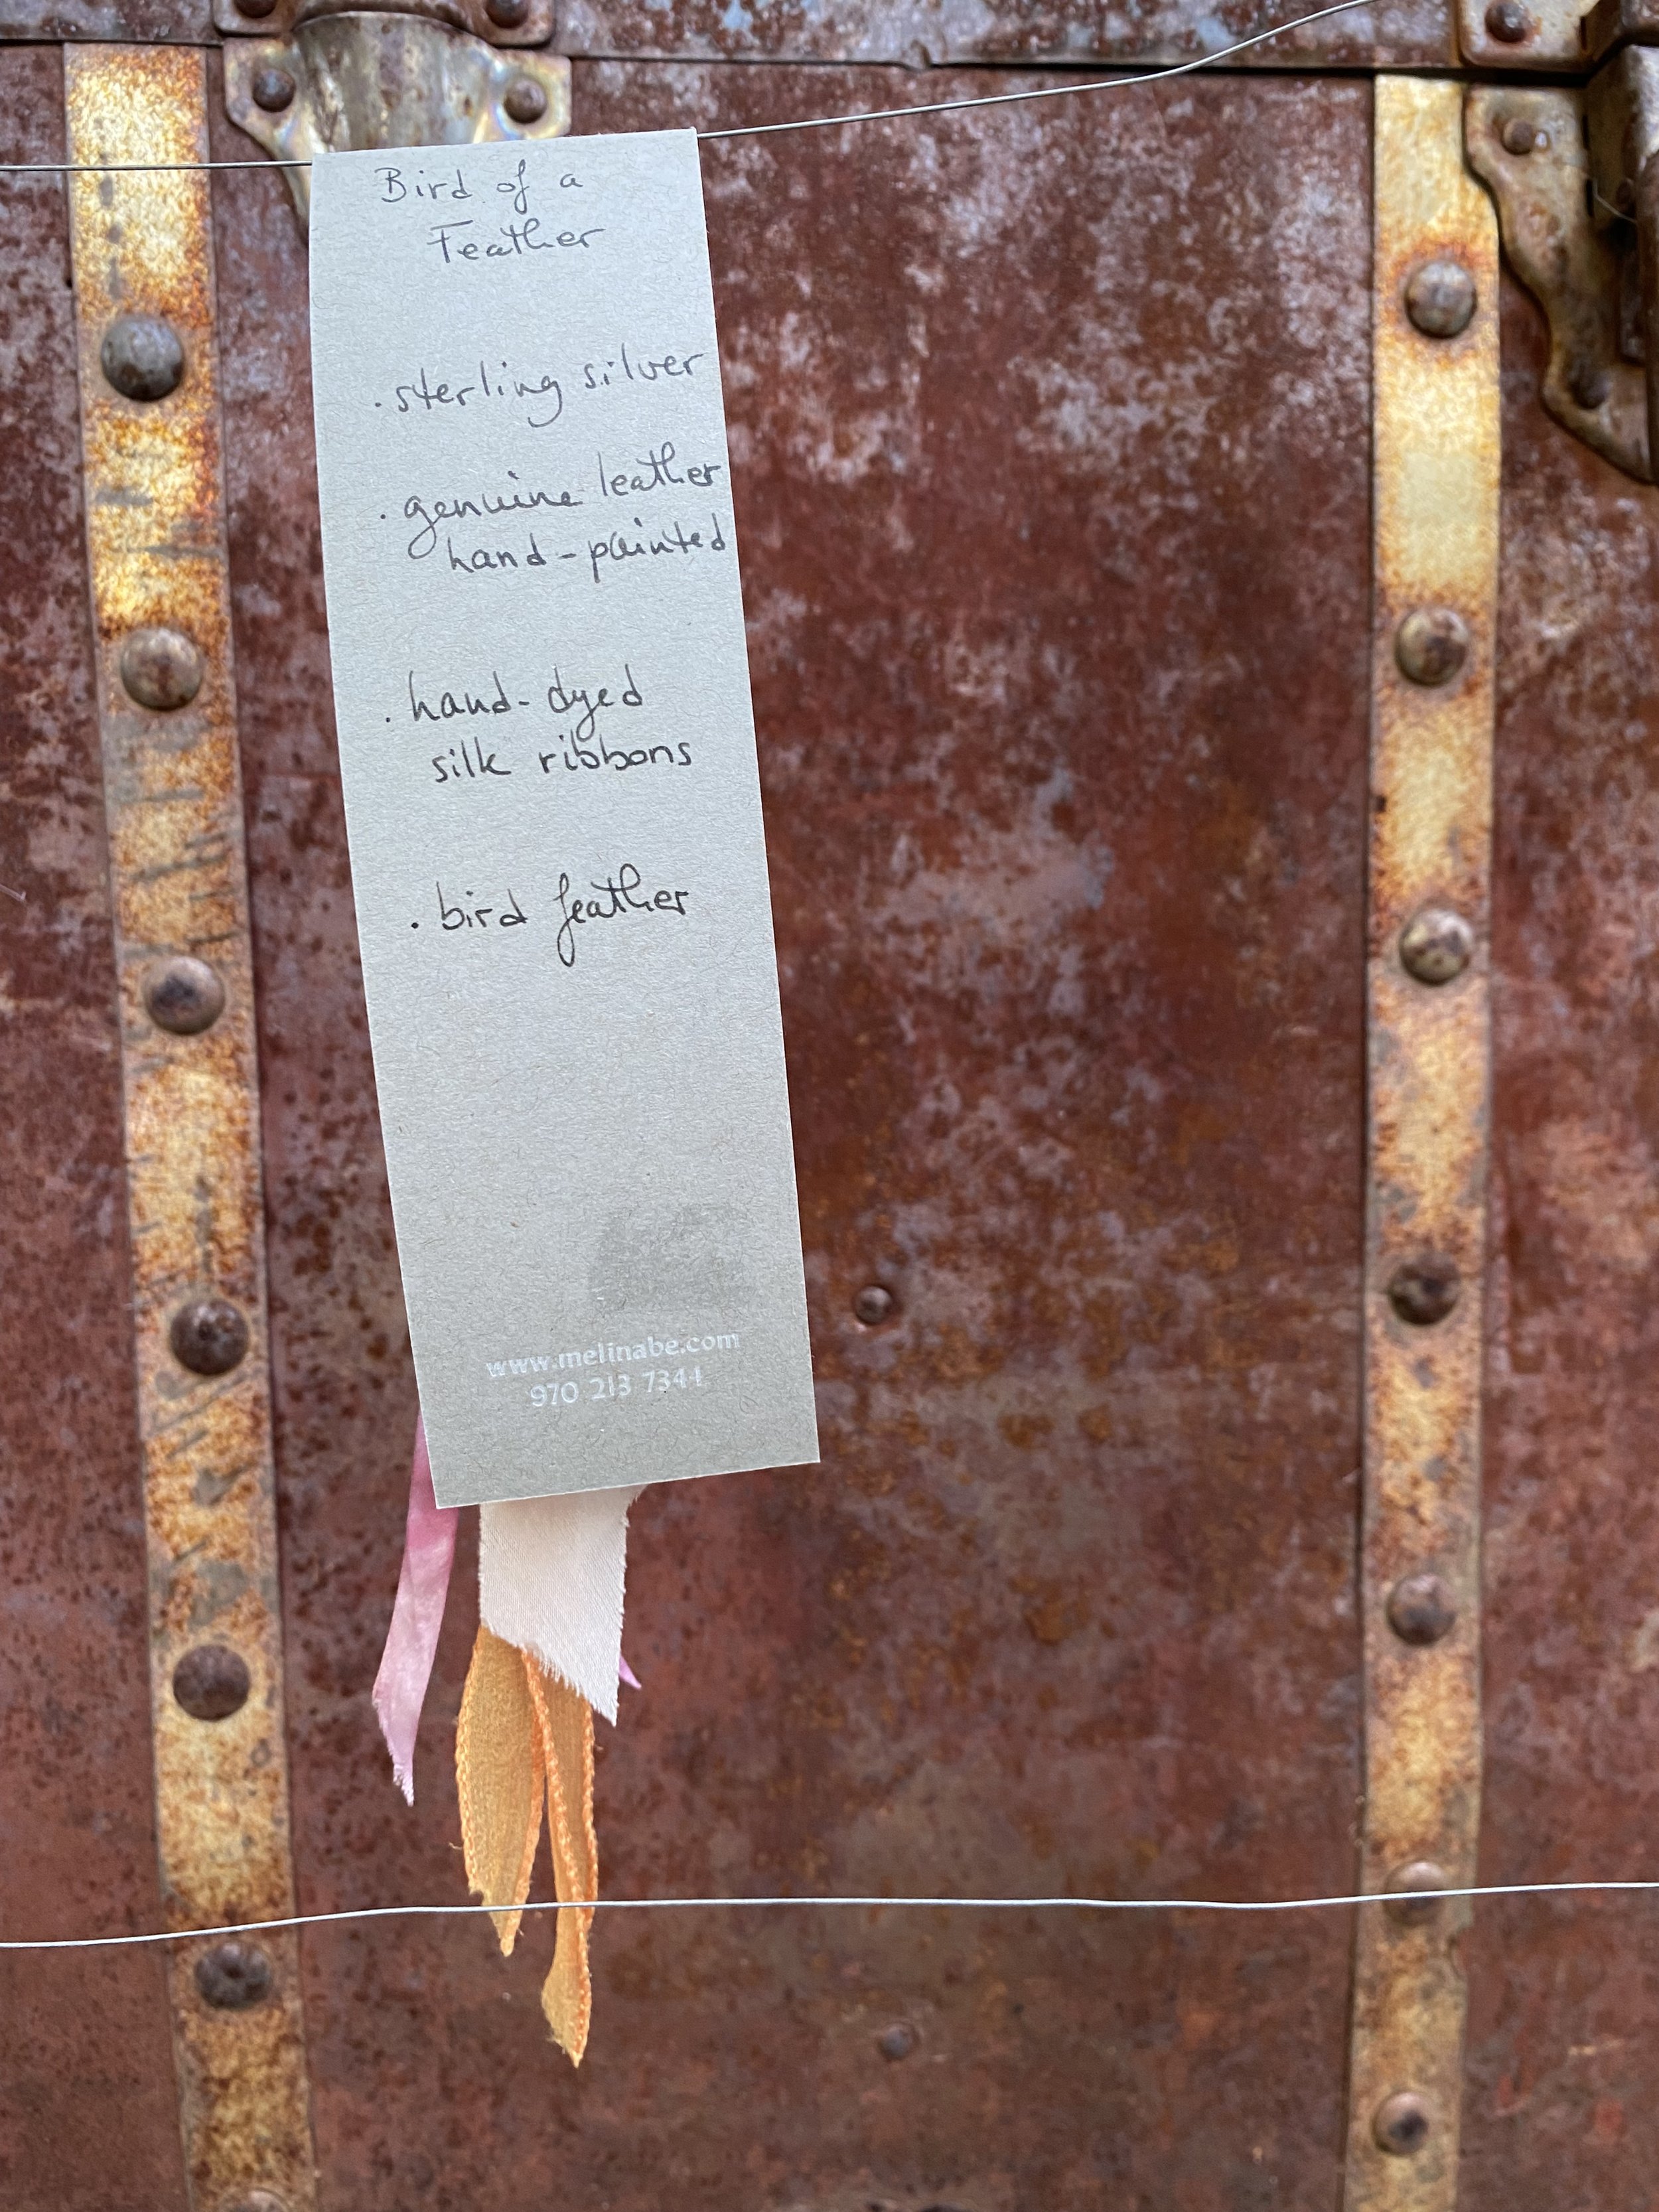 Bird of a
Feather
. sterling silver
. genuine leather
hand-painted
. hand-dyed
silk ribbons
. bird feather
www.melinabe.com
970 213 7344